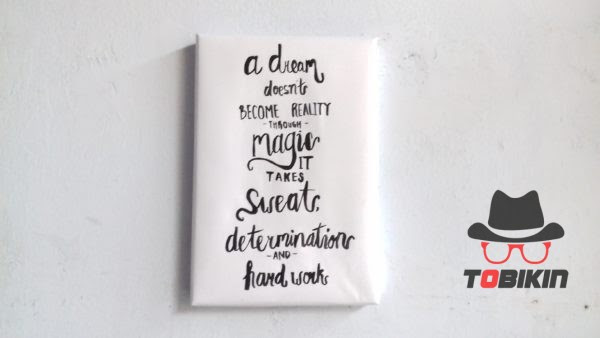 a dream
doesn't
BECOME REALITY
- THROUGH -
magic
IT
TAKES
Sweats,
determination
- AND -
hard work
TOBIKIN